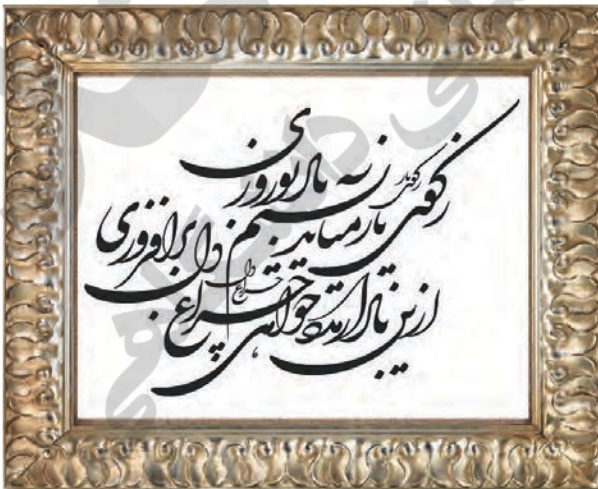 ز کوی یار میاید نسیم باد نوروزی
ازین باد ار مدد خواهی چراغ دل برافروزی
چراغ دل